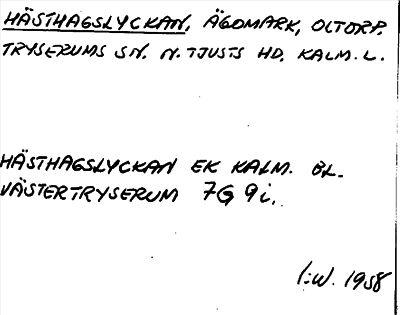 HÄSTHAGSLYCKAN, ÄGOMARK, OLTORP.
TRYSERUMS SN. N. TJUSTS HD. KALM. L.
HÄSTHAGSLYCKAN EK KALM. BL.
VÄSTERTRYSERUM 7G 9i.
I:W. 1958